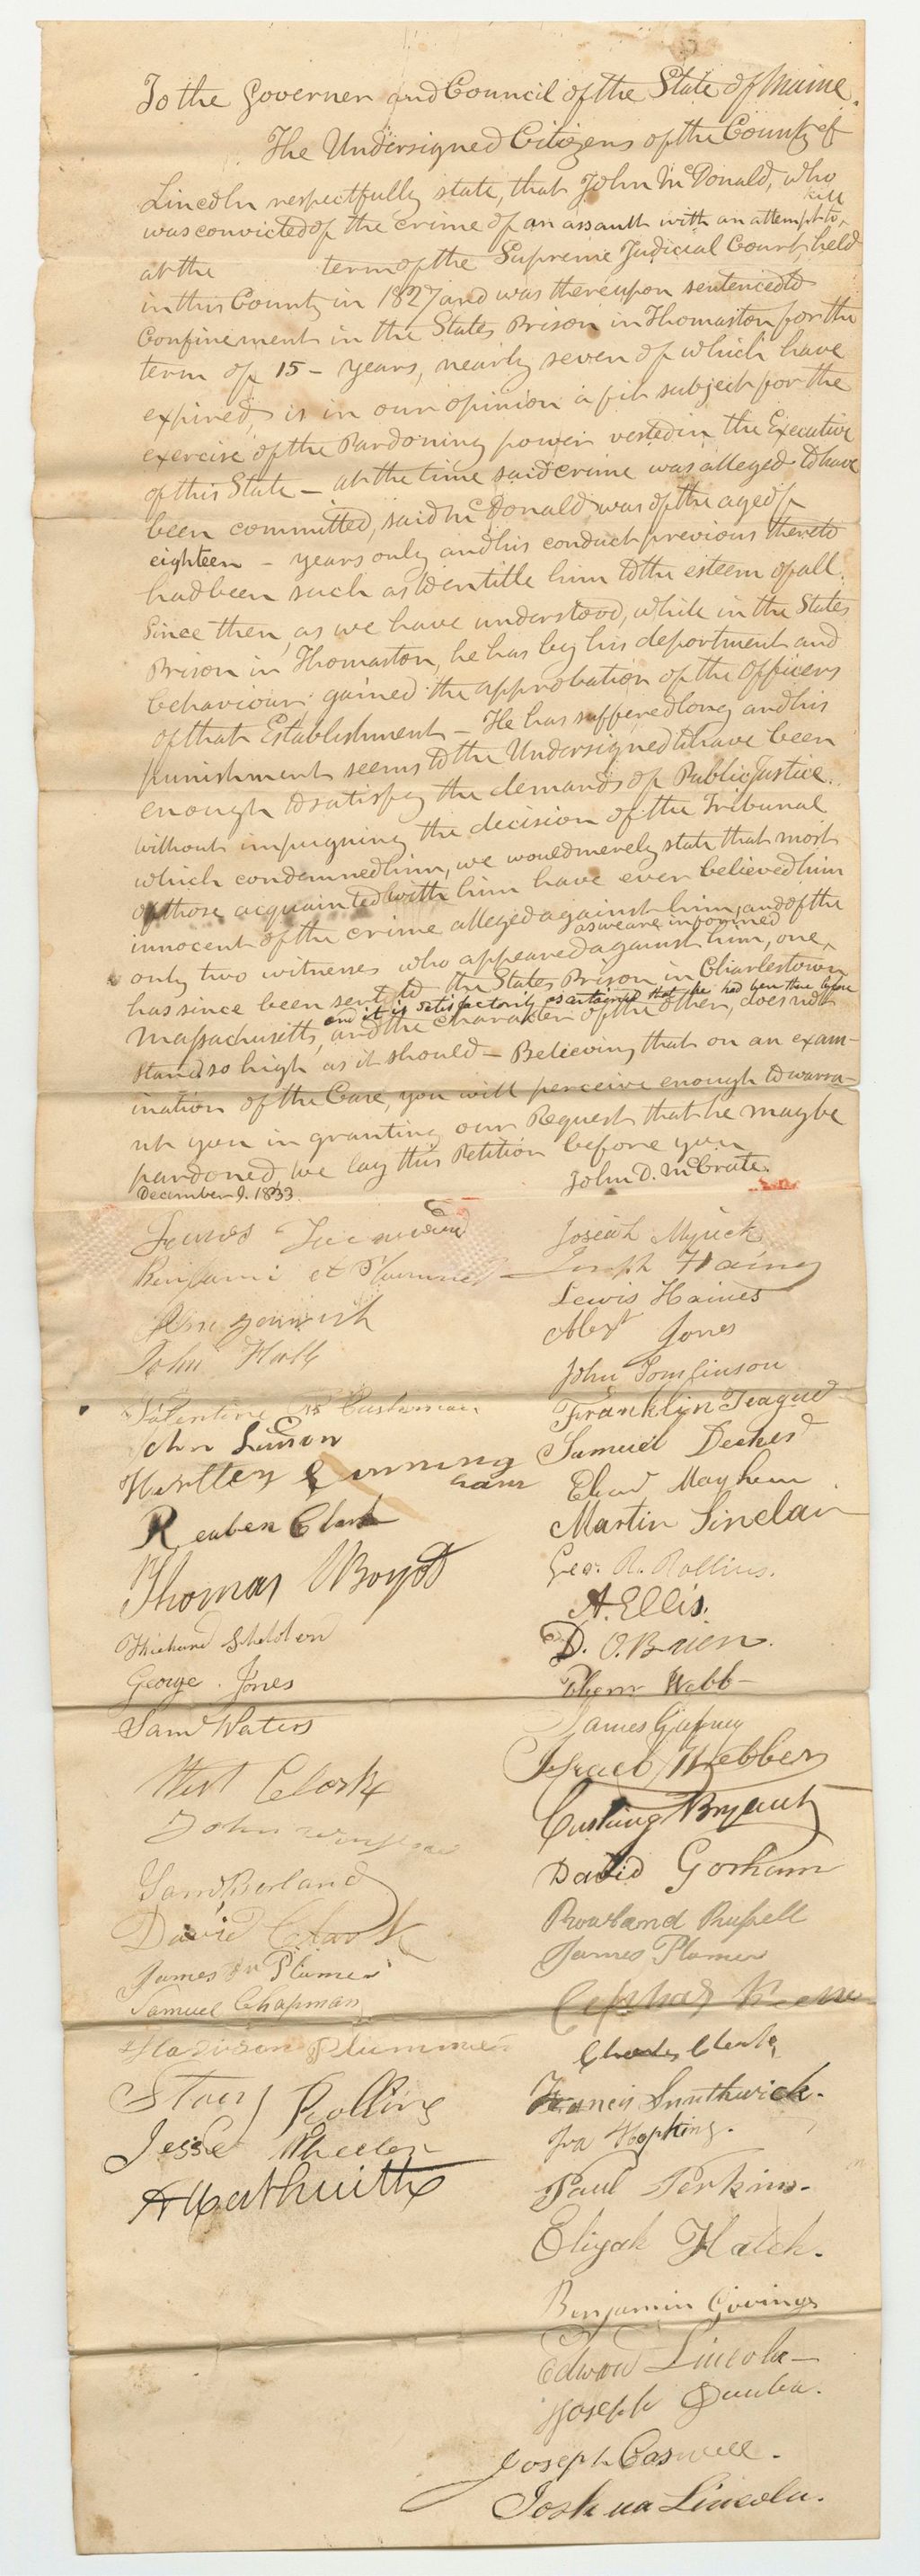 To the Governer and Council of the State of Maine.
The Undersigned Citizens of the County of
Lincoln respectfully state, that John McDonald, who
was convicted of the crime of an assault with an attempt to kill
at the term of the Supreme Judicial Court, held
in this County in 1827 and was thereupon sentenced to
Confinement in the States Prison in Thomaston for the
term of 15 - years, nearly seven of which have
expired, is in our opinion a fit subject for the
exercise of the Pardoning power vested in the Executive
of this State - at the time said crime was alleged to have
been committed, said McDonald was of the age of
eighteen - years only and his conduct previous thereto
had been such as to entitle him to the esteem of all.
Since then, as we have understood, while in the States
Prison in Thomaston, he has by his deportment and
behaviour gained the approbation of the Officers
of that Establishment - He has suffered long and his
punishment seems to the Undersigned to have been
enough to satisfy the demands of Public Justice.
Without impugning the decision of the Tribunal
which condemned him, we would merely state that most
of those acquainted with him have ever believed him
innocent of the crime alleged against him, and of the
as we are informed
only two witnesses who appeared against him, one,
has since been sent to the States Prison in Charlestown
and it is satisfactorily ascertained that he had been there before
Massachusetts, and the character of the other, does not
stand so high as it should - Believing that on an exam-
ination of the Case, you will perceive enough to warra-
nt you in granting our Request that he may be
pardoned, we lay this Petition before you
December 9. 1833.
John D. McCrate.
Josiah Myrick
Joseph Haines
Lewis Haines
Jones
John Hall
John Tomlinson
Valentine Cushman
Franklin Teague
John
Samuel Decker
Hartley Cunningham
Mayhew
Reuben Clark
Martin Sinclair
Thomas Boyd
Geo. R. Rollins.
A. Ellis.
Richard Shelden
D. O.Brien.
George Jones
Webb
Saml Waters
James
Israel Webber
Clark
Cushing Bryant
John
David Gorham
Saml Borland
Rowland Russell
David Clark
James Plumer
James Plumer
Samuel Chapman
Cephas
Madison Plummer
Charles Clark
Stacy Rollins
Francis Smithwick.
Jesse Wheeler
Ira Hopkins.
Paul Perkins.
Elijah Hatch.
Benjamin
Edward Lincoln
Joseph
Joseph Caswell.
Joshua Lincoln.